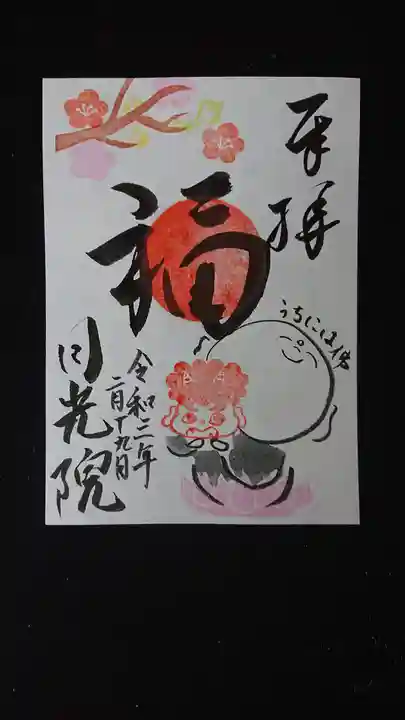 奉拝
福
うちには佛
令和二年
二月十九日
月光院